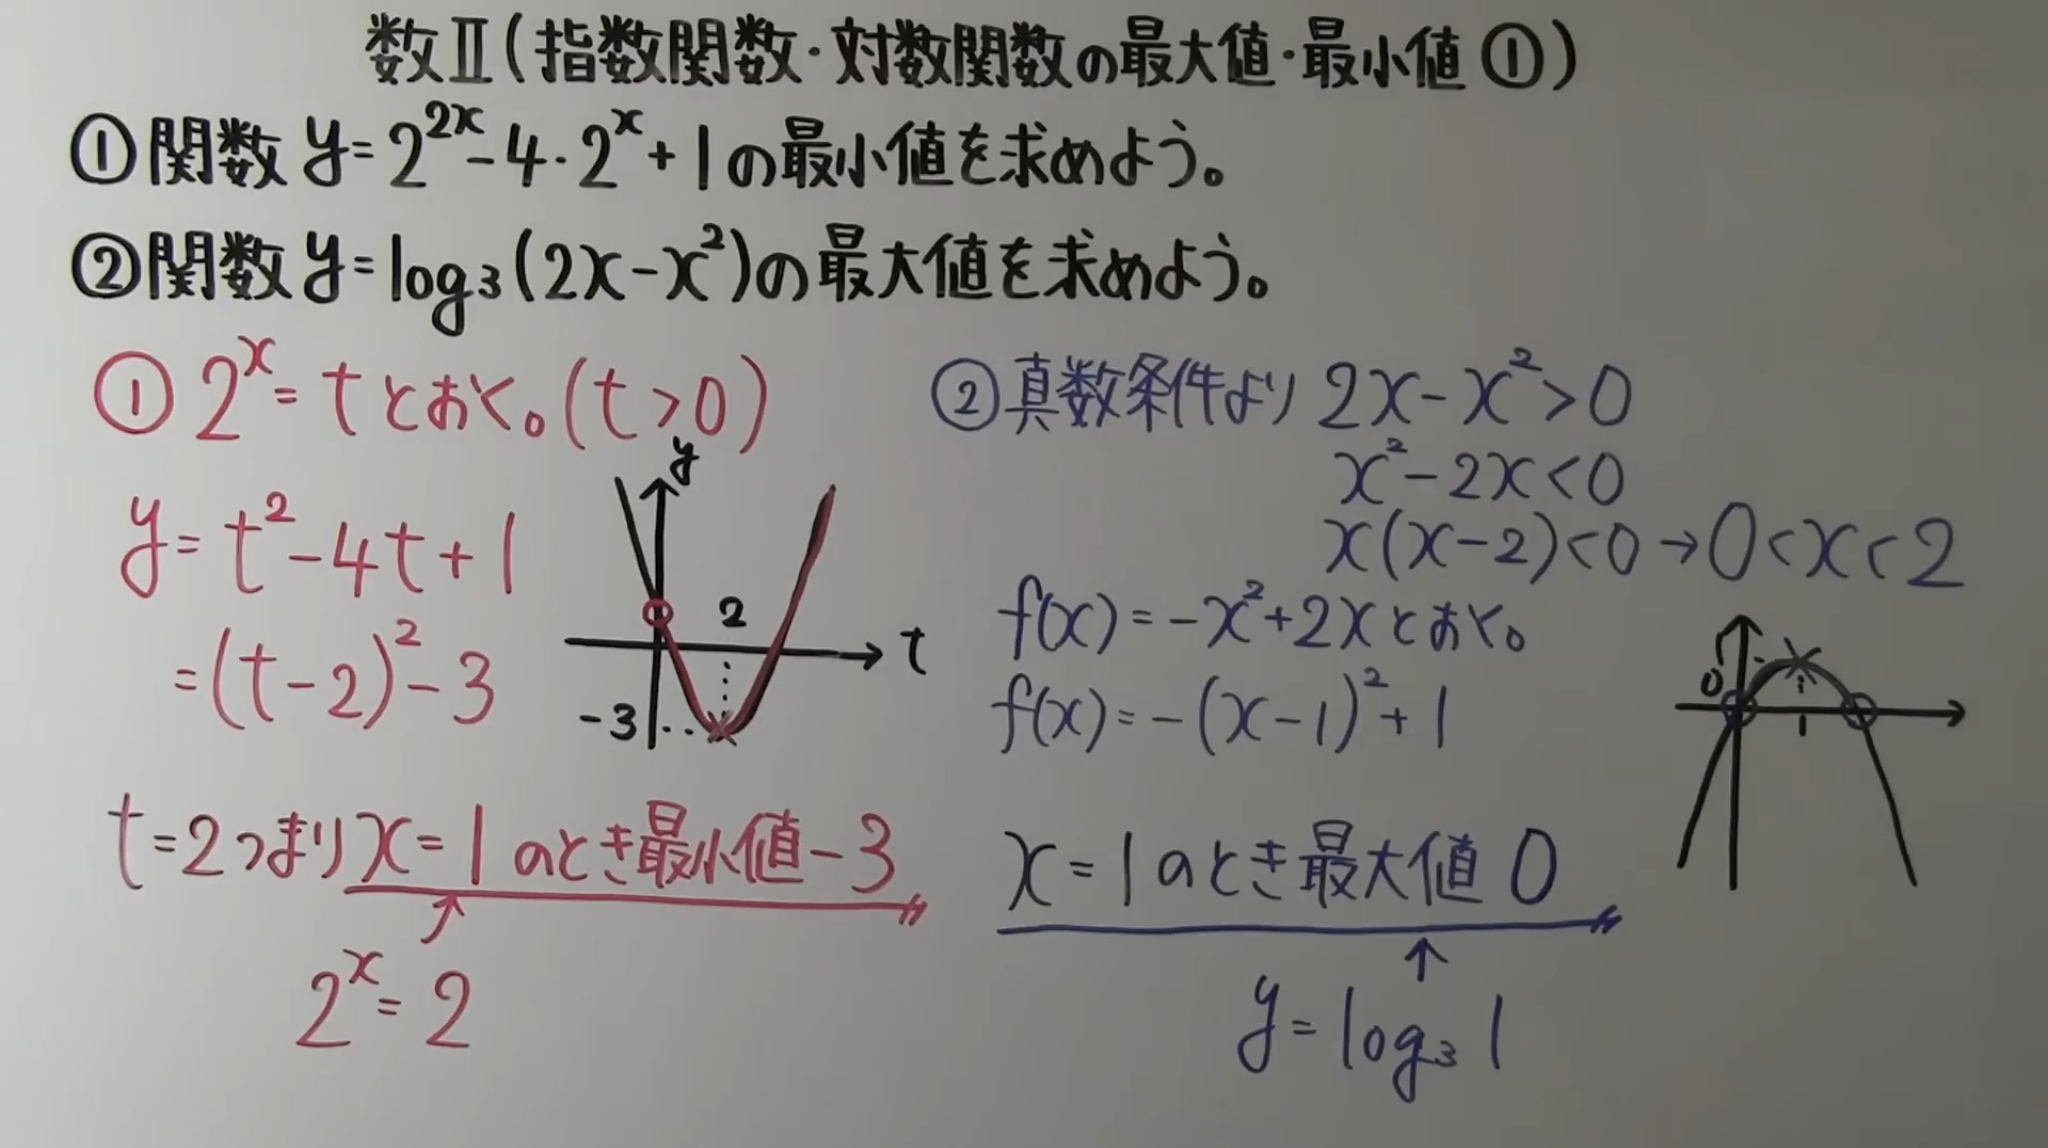 数Ⅱ(指数関数・対数関数の最大値・最小値①)
①関数 y=2^{2x}-4・2^x+1の最小値を求めよう。
②関数 y=log₃(2x-x²)の最大値を求めよう。
① 2^x=tとおく。(t>0)
y=t²-4t+1
=(t-2)²-3
y
2
t
-3
t=2つまりx=1のとき最小値-3
↑
2^x=2
②真数条件より 2x-x²>0
x²-2x<0
x(x-2)<0→0<x<2
f(x)=-x²+2xとおく。
f(x)=-(x-1)²+1
0
1
x=1のとき最大値 0
↑
y=log₃1